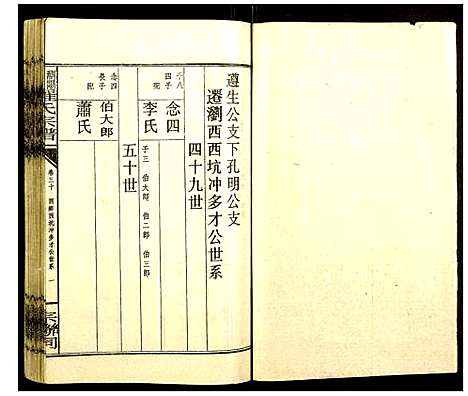 遵生公支下孔明公支
遷瀏西西坑冲多才公世系
四十九世
十八
四子
念四
李氏
子三 伯大郎 伯二郎 伯三郎
五十世
念四
長子
伯大郎
蕭氏
氏宗譜
卷三十 西鄉西坑冲多才公世系 一